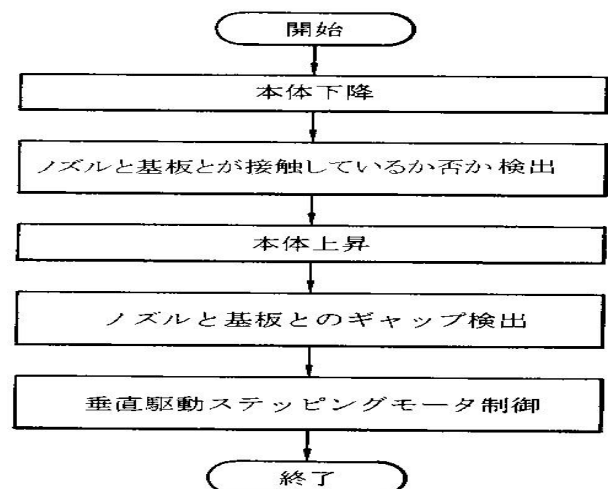 開始
本体下降
ノズルと基板とが接触しているか否か検出
本体上昇
ノズルと基板とのギャップ検出
垂直駆動ステッピングモータ制御
終了